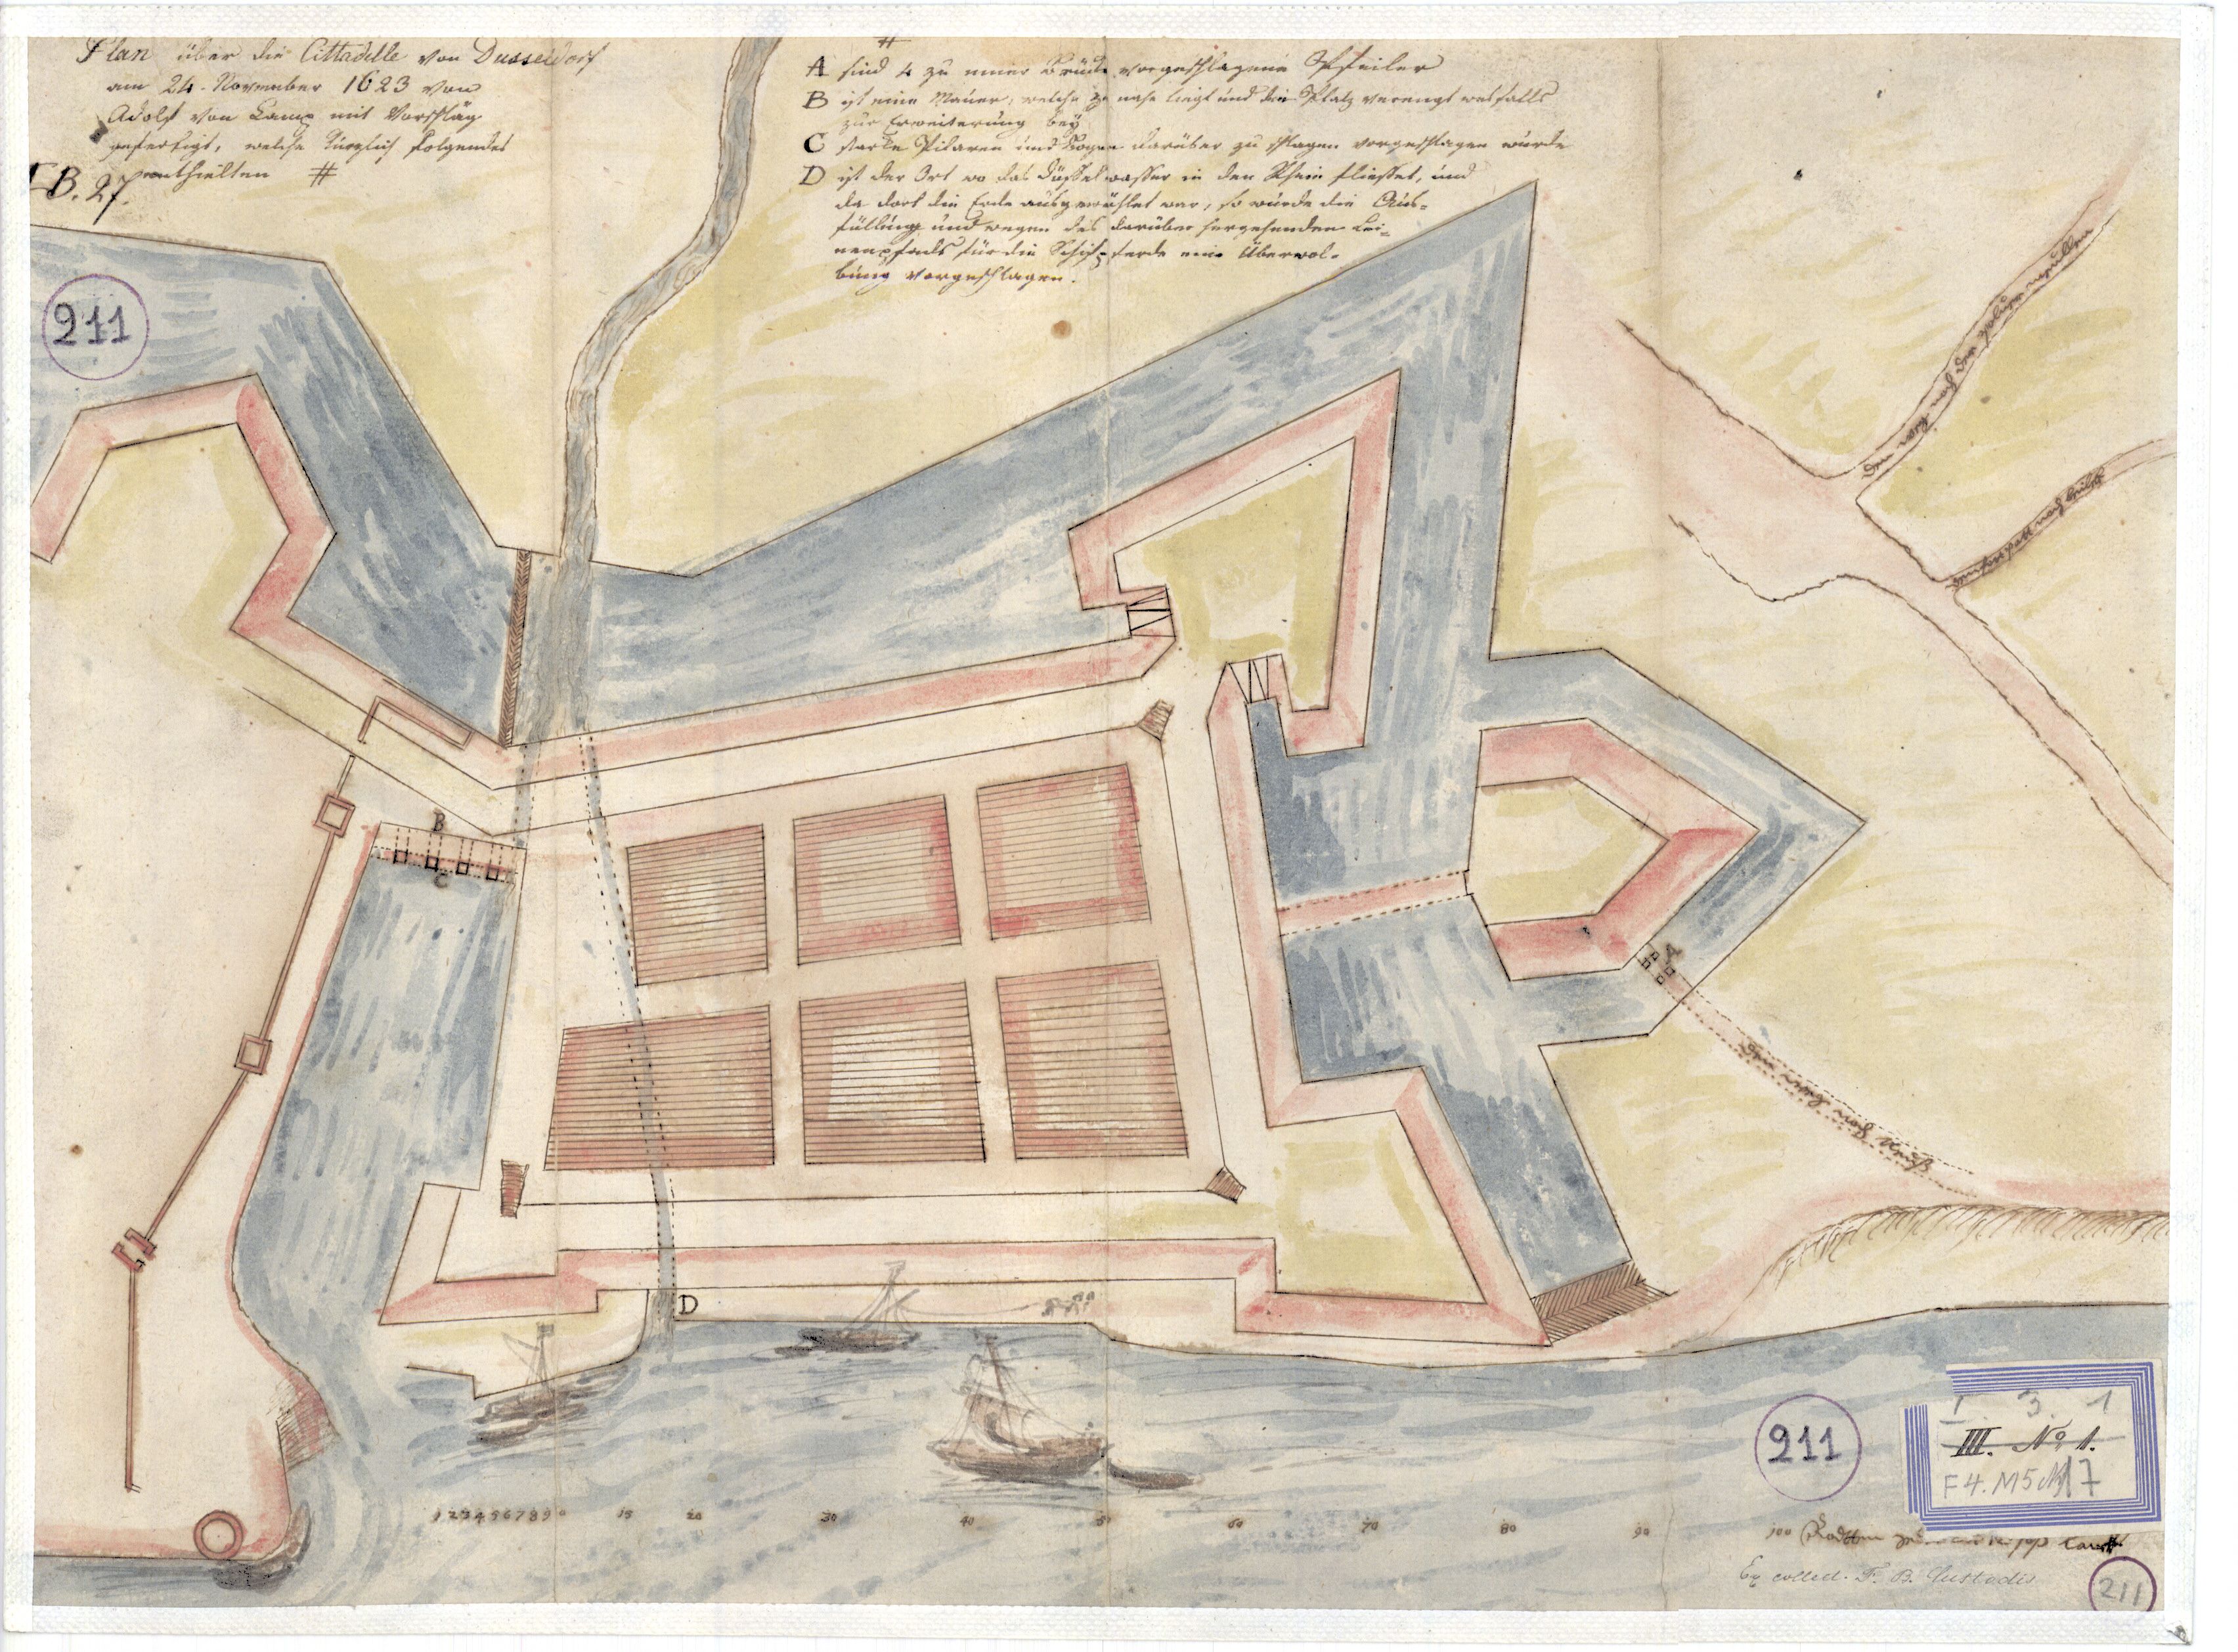 Plan über die Cittadelle von Dusseldorf
am 24. November 1623 von
Adolf von Kamp mit Vorschläg
gefertigt, welche kürzlich folgendes
enthielten #
B. 27.
#
A sind 4 zu einer Brücke vorgeschlagene Pfeiler
B ist eine Mauer, welche zu nahe liegt und den Platz verengt, wesfalls
zur Erweiterung bey
C starke Pilaren und Bogen darüber zu schlagen vorgeschlagen wurde
D ist der Ort wo das Düsselwasser in den Rhein fliesset, und
da dort die Erde ausgewühlet war, so wurde die Aus=
füllung und wegen des darüber hergehenden Lei=
nenpfads für die Schifpferde eine Überwöl=
bung vorgeschlagen.
211
Der weg nach
nach
B
C
A
Der weg nach Neuß
D
1 2 3 4 5 6 7 8 9 0 15 20 30 40 50 60 70 80 90 100
211
I 3. 1
III. No 1.
F4. M5 17
Ex collect. F. B. Custodis
211